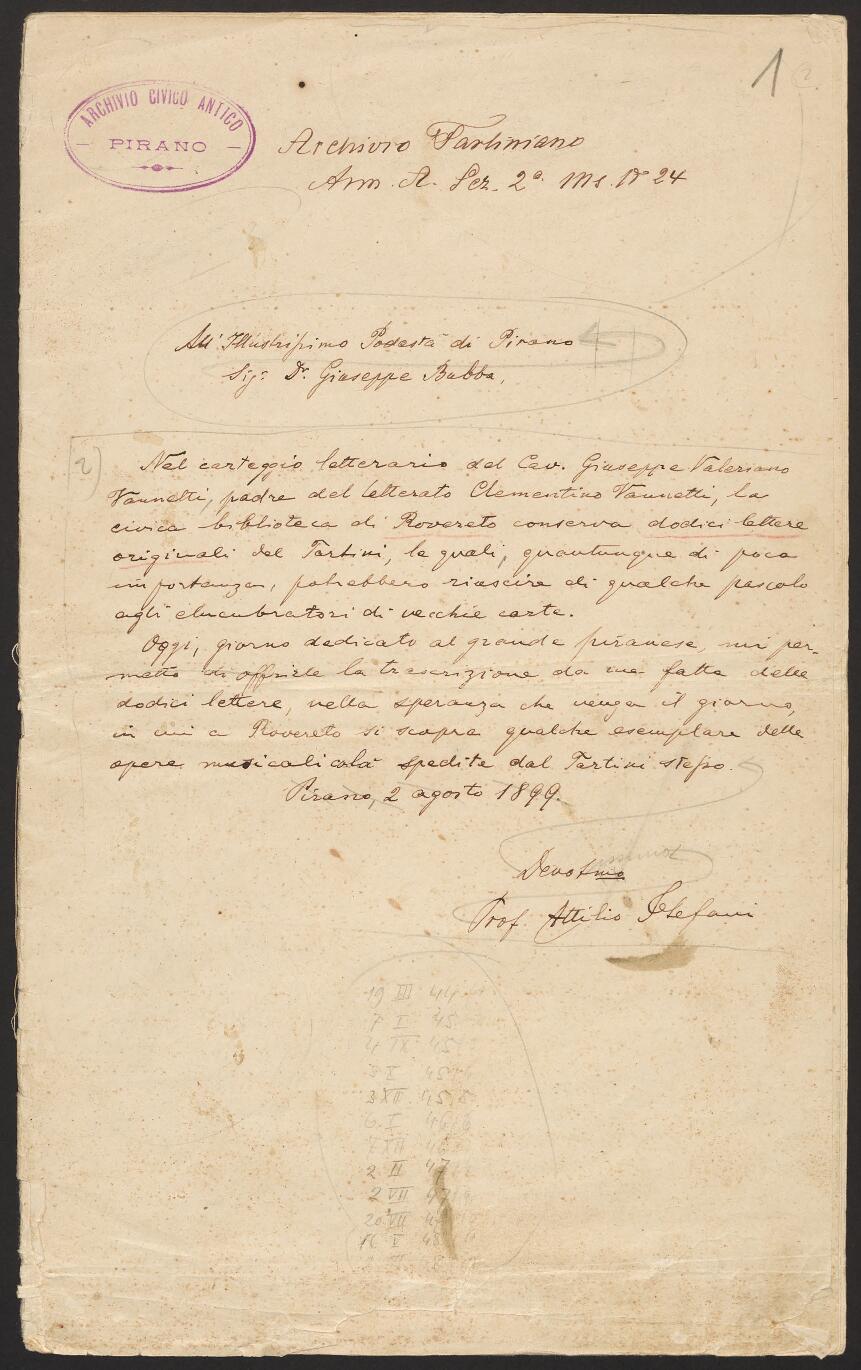 1
ARCHIVIO CIVICO ANTICO
PIRANO
Archivio Tartiniano
Arm. A. Sez. 2a. Ms. No 24
All' Illustrissimo Podestà di Pirano
Sigr. Dr. Giuseppe Bubba,
2)
Nel carteggio letterario del Cav. Giuseppe Valeriano
Vannetti, padre del letterato Clementino Vannetti, la
civica biblioteca di Rovereto conserva dodici lettere
originali del Tartini, le quali, quantunque di poca
importanza, potrebbero riuscire di qualche pascolo
agli elucubratori di vecchie carte.
Oggi, giorno dedicato al grande piranese, mi per-
metto di offrirle la trascrizione da me fatta delle
dodici lettere, nella speranza che venga il giorno,
in cui a Rovereto si scopra qualche esemplare delle
opere musicali colà spedite dal Tartini stesso.
Pirano, 2 agosto 1899.
Devotmo
Prof. Attilio Stefani
19 III 44
7 I 45
4 IX 45
3 X 45
3 XII 45
6 I 46
7 XII 46
2 II 47
2 VII 47
20 VII 47
16 V 48